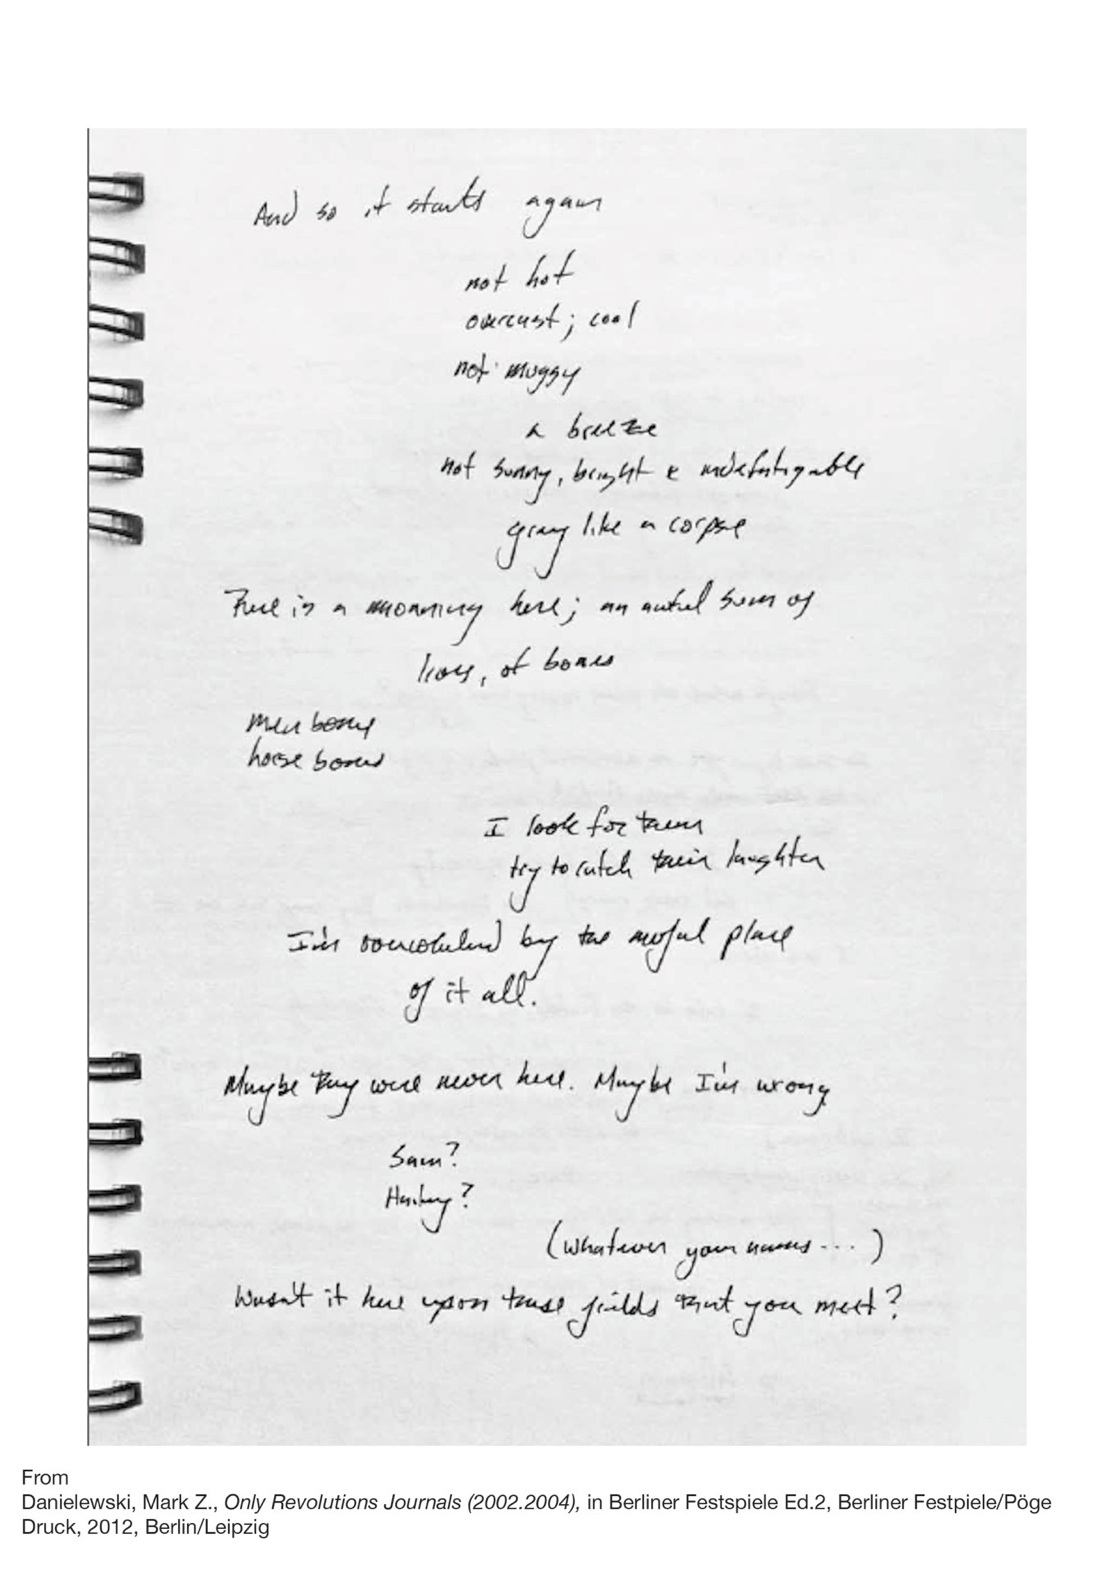 And so it starts again
not hot
overcast; cool
not muggy
a breeze
not sunny, bright & indefatigable
gray like a corpse
There is a moaning here; an awful sum of
lives, of bones
men bones
horse bones
I look for them
try to catch their laughter
I'm overwhelmed by the awful place
of it all.
Maybe they were never here. Maybe I'm wrong
Sam?
Hailey?
(whatever your names...)
Wasn't it here upon these fields that you meet?
From
Danielewski, Mark Z., Only Revolutions Journals (2002.2004), in Berliner Festspiele Ed.2, Berliner Festpiele/Pöge
Druck, 2012, Berlin/Leipzig